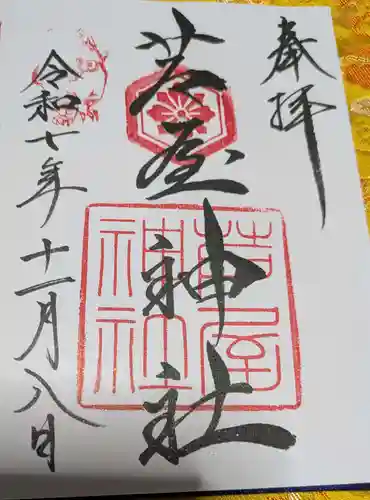 奉拝
芦屋神社
芦屋
神社
令和七年十一月八日